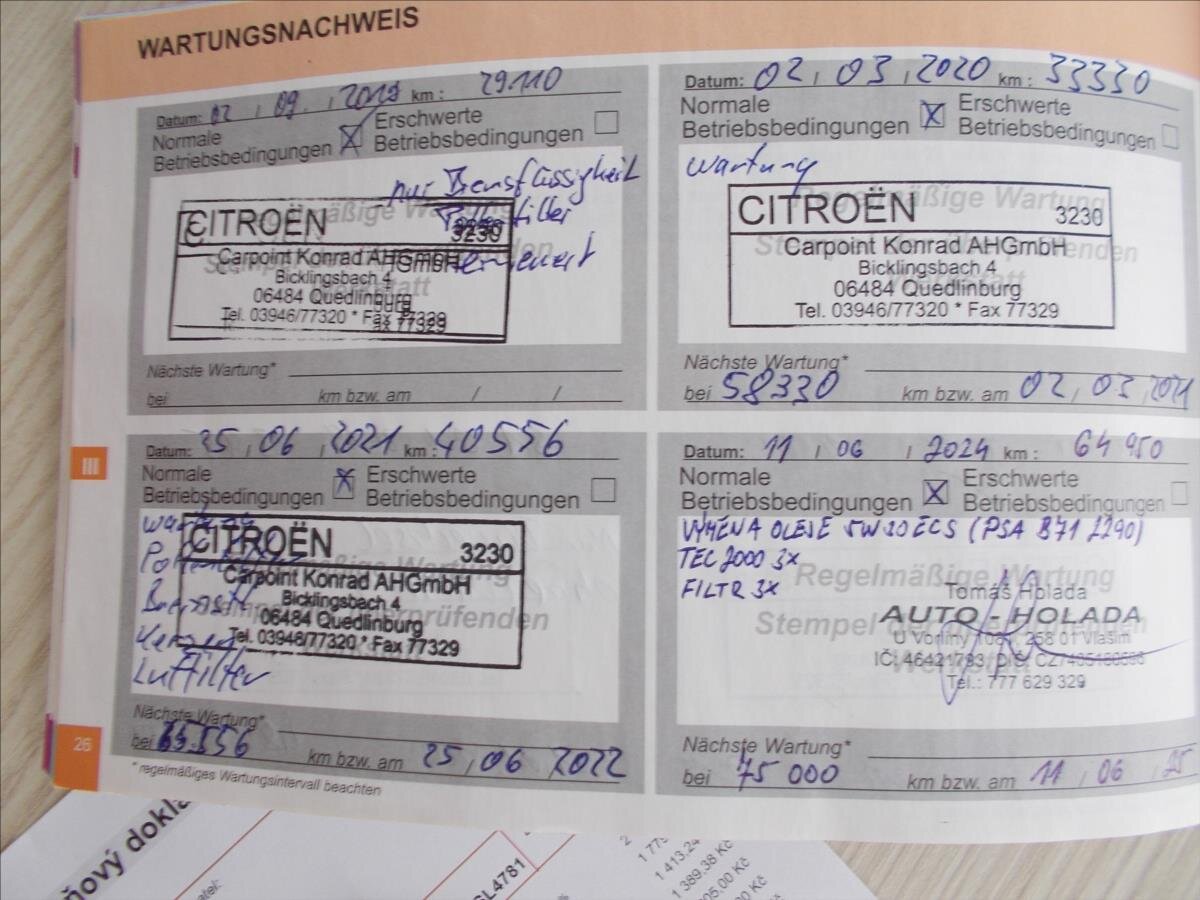 WARTUNGSNACHWEIS
Datum: 02 / 09. / 2019 km: 29110
Normale Betriebsbedingungen X Erschwerte Betriebsbedingungen
nur
filter
erneuert
CITROËN 3230
Carpoint Konrad AHGmbH
Bicklingsbach 4
06484 Quedlinburg
Tel. 03946/77320 * Fax 77329
Nächste Wartung*
bei km bzw. am / /
Datum: 02 / 03 / 2020 km: 33330
Normale Betriebsbedingungen X Erschwerte Betriebsbedingungen
Wartung
Regelmäßige Wartung
CITROËN 3230
Carpoint Konrad AHGmbH
Bicklingsbach 4
06484 Quedlinburg
Tel. 03946/77320 * Fax 77329
Nächste Wartung*
bei 58330 km bzw. am 02 / 03 / 2021
Datum: 25 / 06 / 2021 km: 40556
Normale Betriebsbedingungen X Erschwerte Betriebsbedingungen
CITROËN 3230
Carpoint Konrad AHGmbH
Bicklingsbach 4
06484 Quedlinburg
Tel. 03946/77320 * Fax 77329
Luftfilter
Nächste Wartung*
bei 65.556 km bzw. am 25 / 06 / 2022
* regelmäßiges Wartungsintervall beachten
Datum: 11 / 06 / 2024 km: 64 950
Normale Betriebsbedingungen X Erschwerte Betriebsbedingungen
VÝMĚNA OLEJE 5W30 ECS (PSA B71 2290)
TEC 2000 3x
FILTR 3x
Regelmäßige Wartung
Stempel der
Tomáš Holada
AUTO - HOLADA
258 01 Vlašim
Tel.: 777 629 329
Nächste Wartung*
bei 75 000 km bzw. am 11 / 06 / 25
III
26
ňový dokla
SL4781
1 413,24
1 389,38 Kč
05,00 Kč